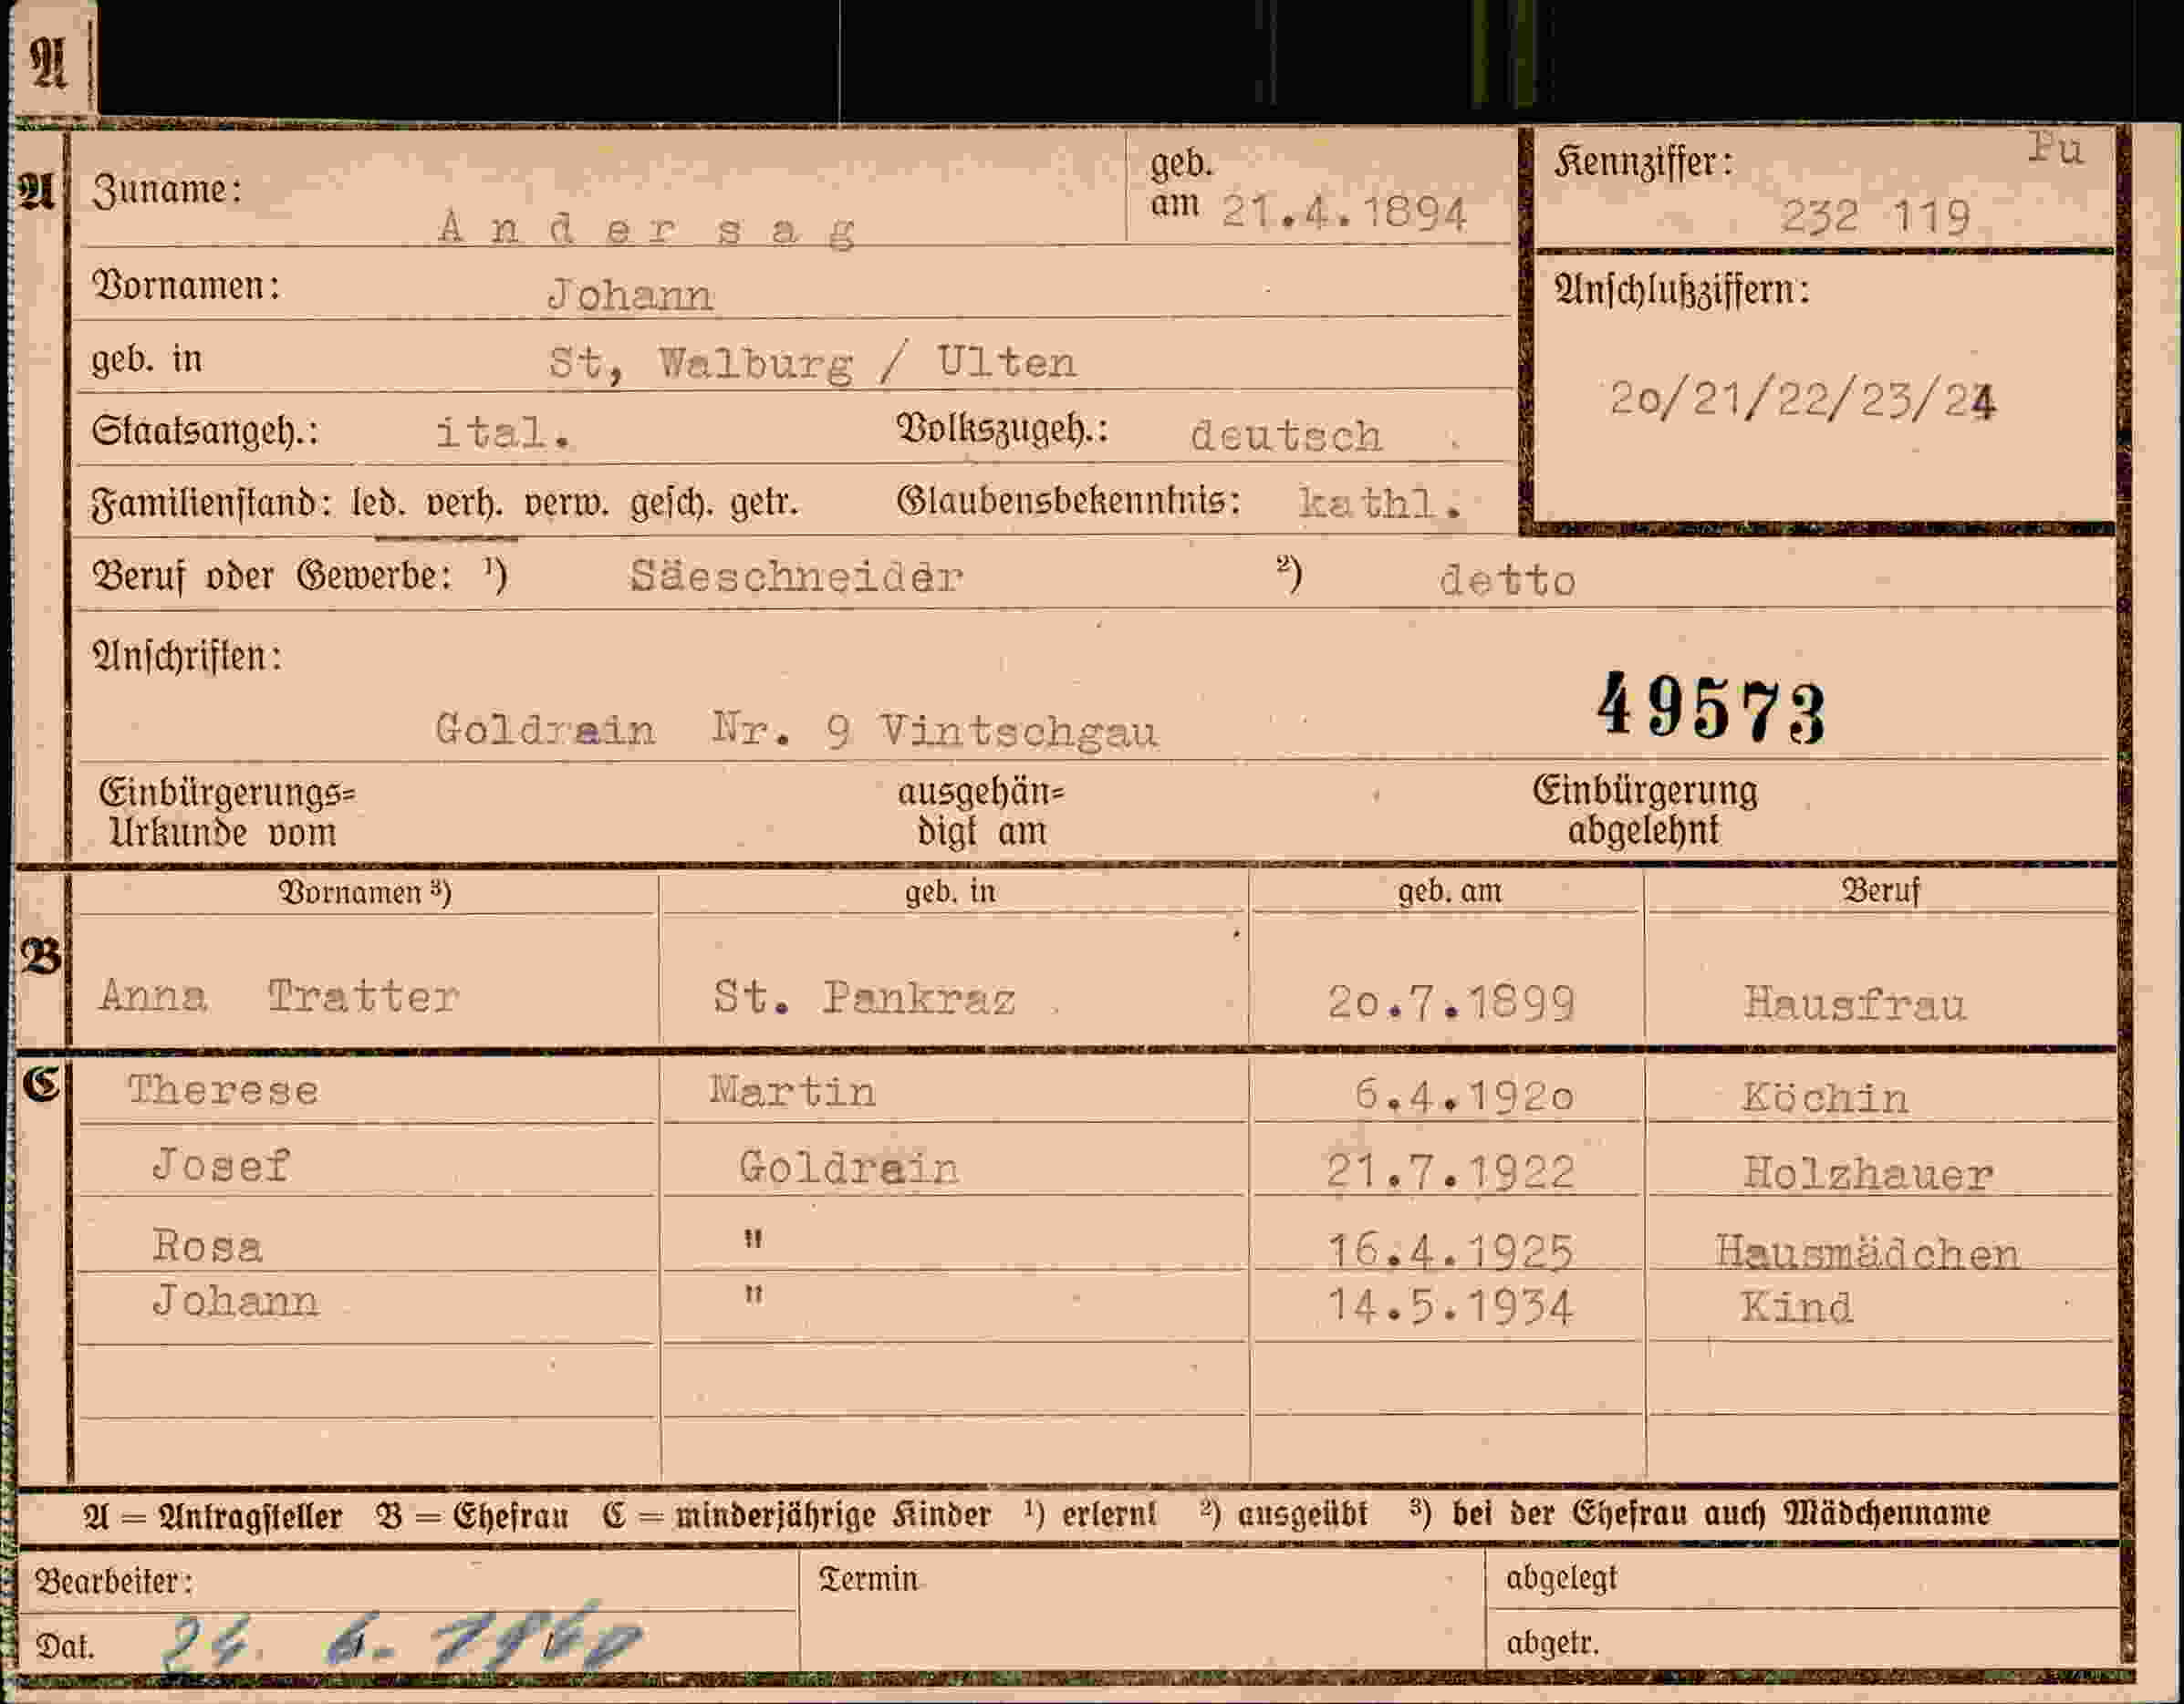 A
A
Zuname: Andersag geb. am 21.4.1894
Kennziffer: Pu
232 119
Vornamen: Johann
Anschlußziffern:
20/21/22/23/24
geb. in St, Walburg / Ulten
Staatsangeh.: ital. Volkszugeh.: deutsch
Familienstand: led. verh. verw. gesch. getr. Glaubensbekenntnis: kathl.
Beruf oder Gewerbe: ¹) Säeschneider ²) detto
Anschriften:
Goldrain Nr. 9 Vintschgau
49573
Einbürgerungs= Urkunde vom ausgehän= digt am Einbürgerung abgelehnt
Vornamen ³) geb. in geb. am Beruf
B
Anna Tratter St. Pankraz 20.7.1899 Hausfrau
C
Therese Martin 6.4.1920 Köchin
Josef Goldrain 21.7.1922 Holzhauer
Rosa " 16.4.1925 Hausmädchen
Johann " 14.5.1934 Kind
A = Antragsteller B = Ehefrau C = minderjährige Kinder ¹) erlernt ²) ausgeübt ³) bei der Ehefrau auch Mädchenname
Bearbeiter: Termin abgelegt
Dat. 24. 6. 1940 abgetr.